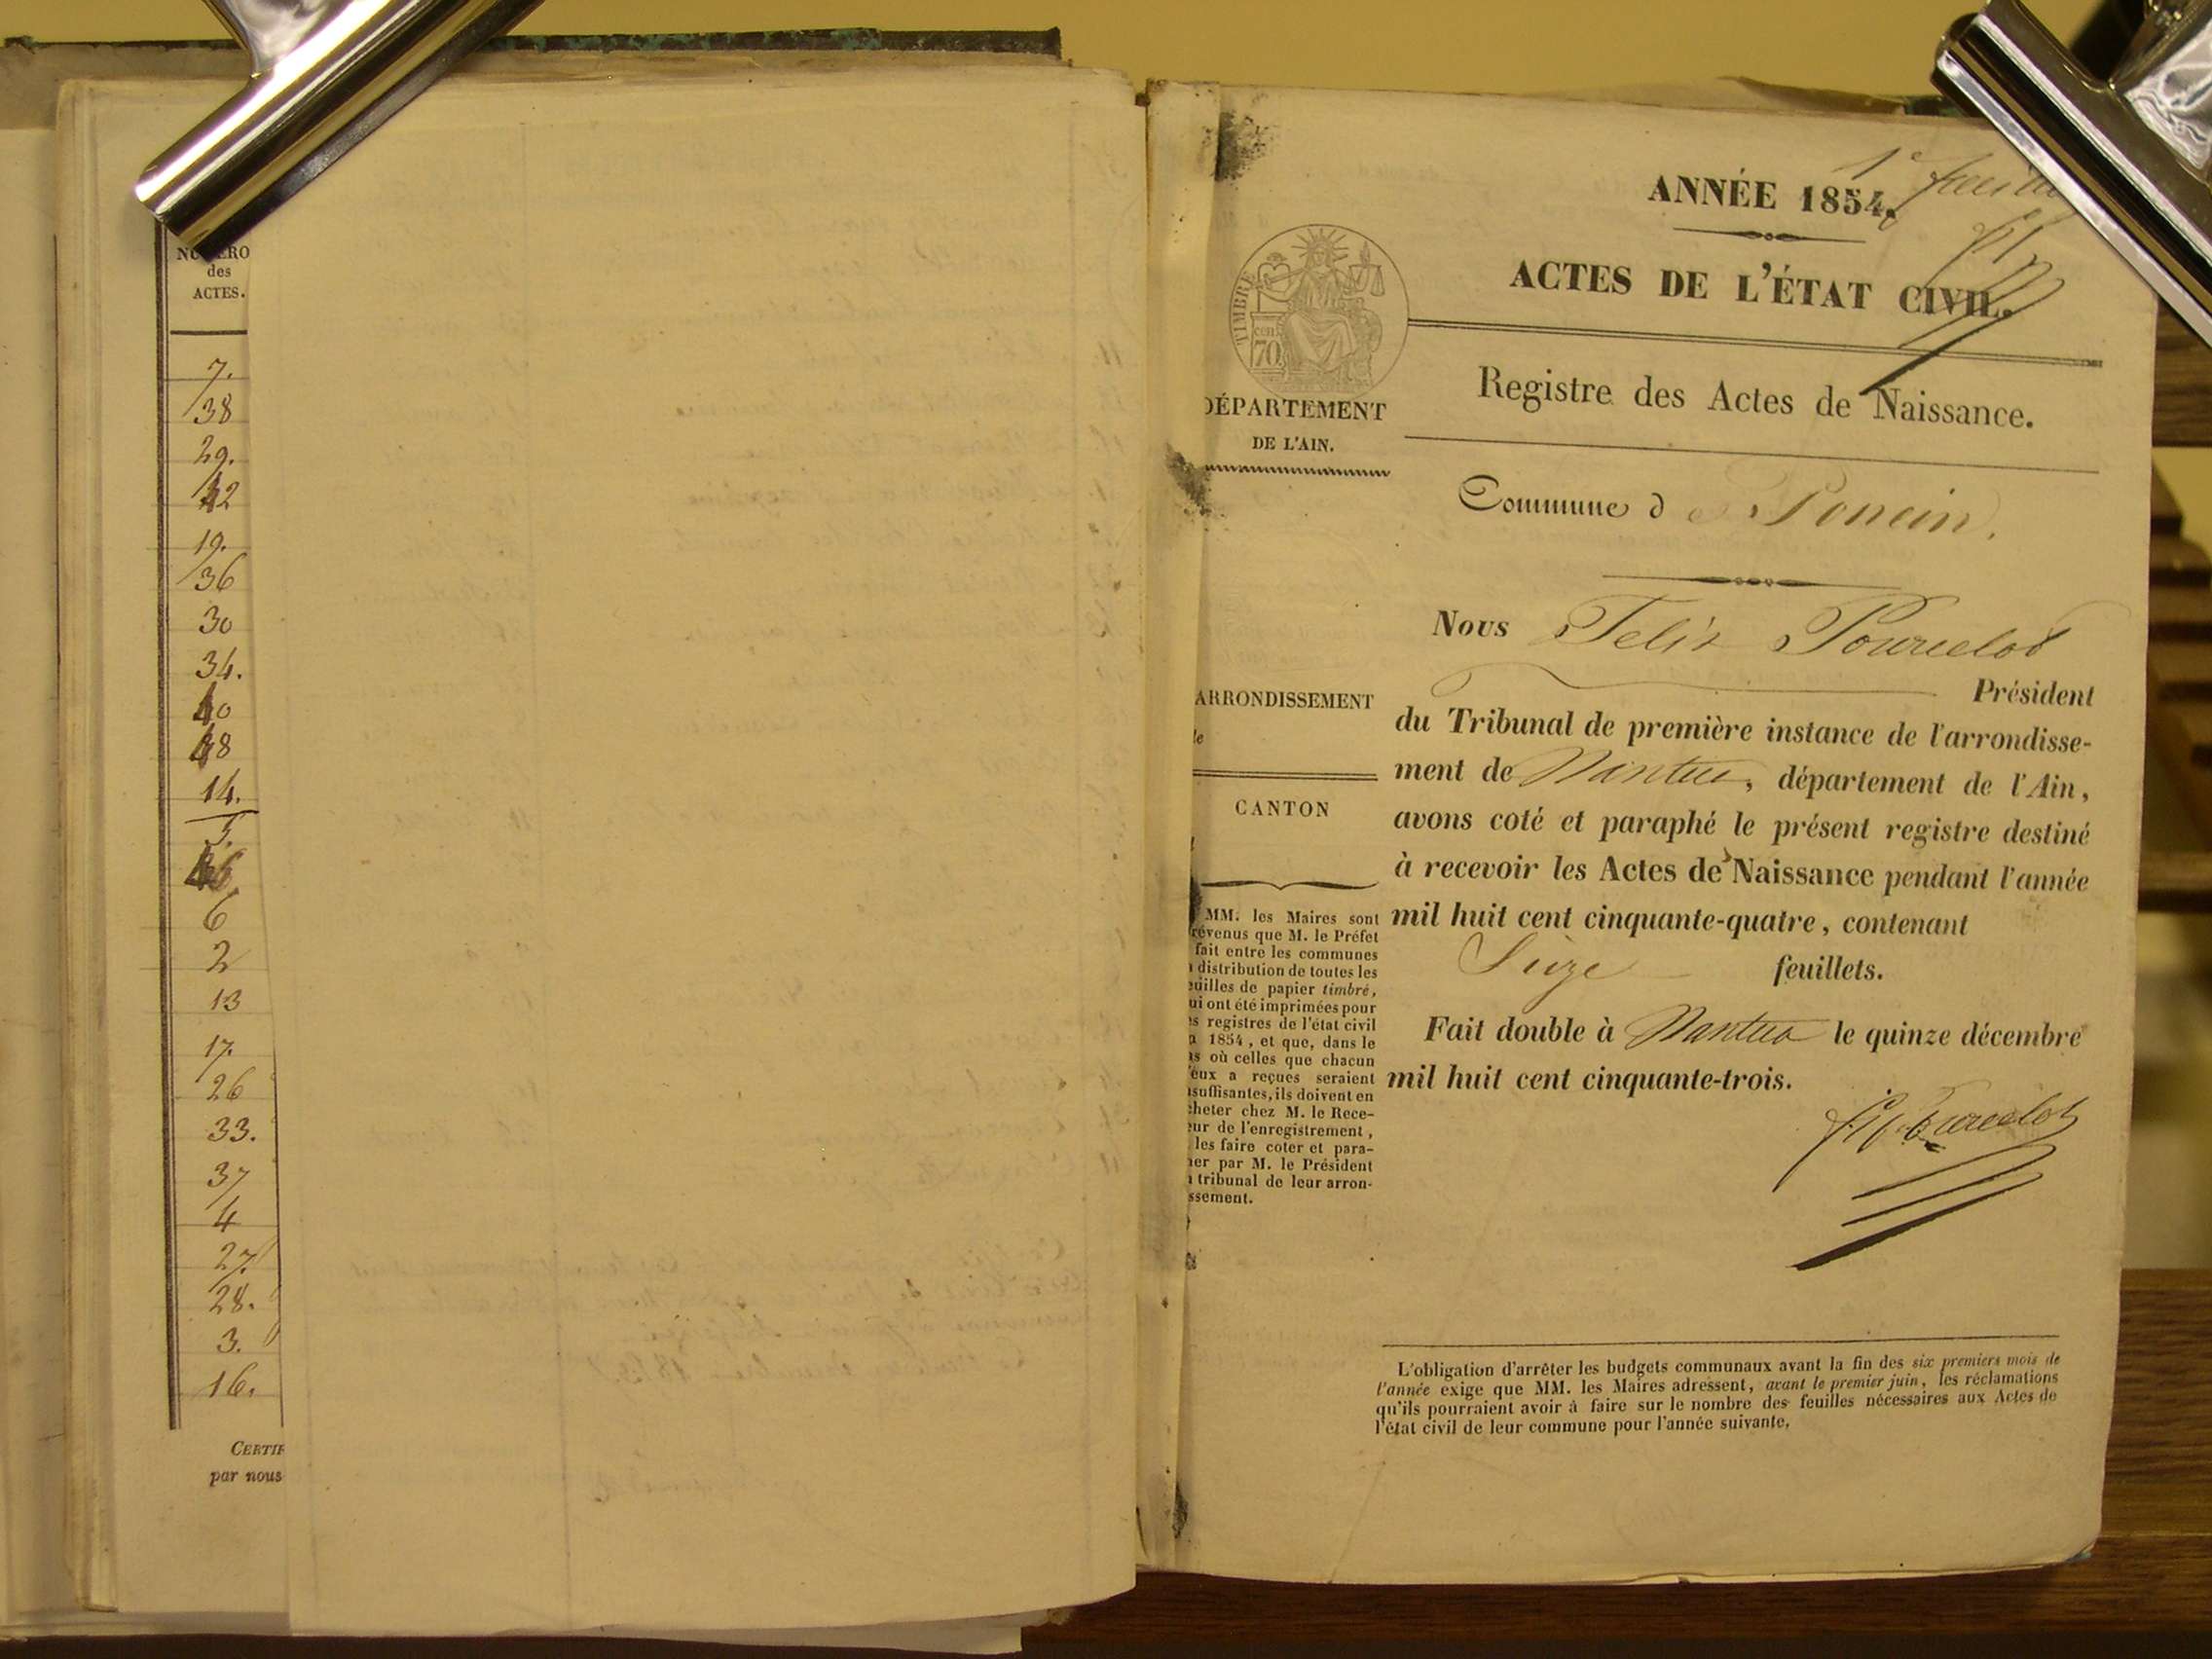 NUMÉRO
des
ACTES.
7.
38
29.
42
19.
36
30
34.
40
48
14.
5.
46.
6
2
13
17.
26
33.
37
4
27.
28.
3.
16.
CERTIF
par nous
1er feuillet
ANNÉE 1854.
ACTES DE L'ÉTAT CIVIL.
TIMBRE
cen.
70.
Registre des Actes de Naissance.
DÉPARTEMENT
DE L'AIN.
Commune de Poncin.
Nous Felix Pourcelot
Président
du Tribunal de première instance de l'arrondisse-
ment de Nantua, département de l'Ain,
avons coté et paraphé le présent registre destiné
à recevoir les Actes de Naissance pendant l'année
mil huit cent cinquante-quatre, contenant
Seize feuillets.
Fait double à Nantua le quinze décembre
mil huit cent cinquante-trois.
Pourcelot
ARRONDISSEMENT
de
CANTON
MM. les Maires sont
révenus que M. le Préfet
fait entre les communes
distribution de toutes les
euilles de papier timbré,
ui ont été imprimées pour
es registres de l'état civil
1854, et que, dans le
as où celles que chacun
'eux a reçues seraient
nsuffisantes, ils doivent en
cheter chez M. le Rece-
eur de l'enregistrement,
les faire coter et para-
her par M. le Président
tribunal de leur arron-
ssement.
L'obligation d'arrêter les budgets communaux avant la fin des six premiers mois de
l'année exige que MM. les Maires adressent, avant le premier juin, les réclamations
qu'ils pourraient avoir à faire sur le nombre des feuilles nécessaires aux Actes de
l'état civil de leur commune pour l'année suivante.